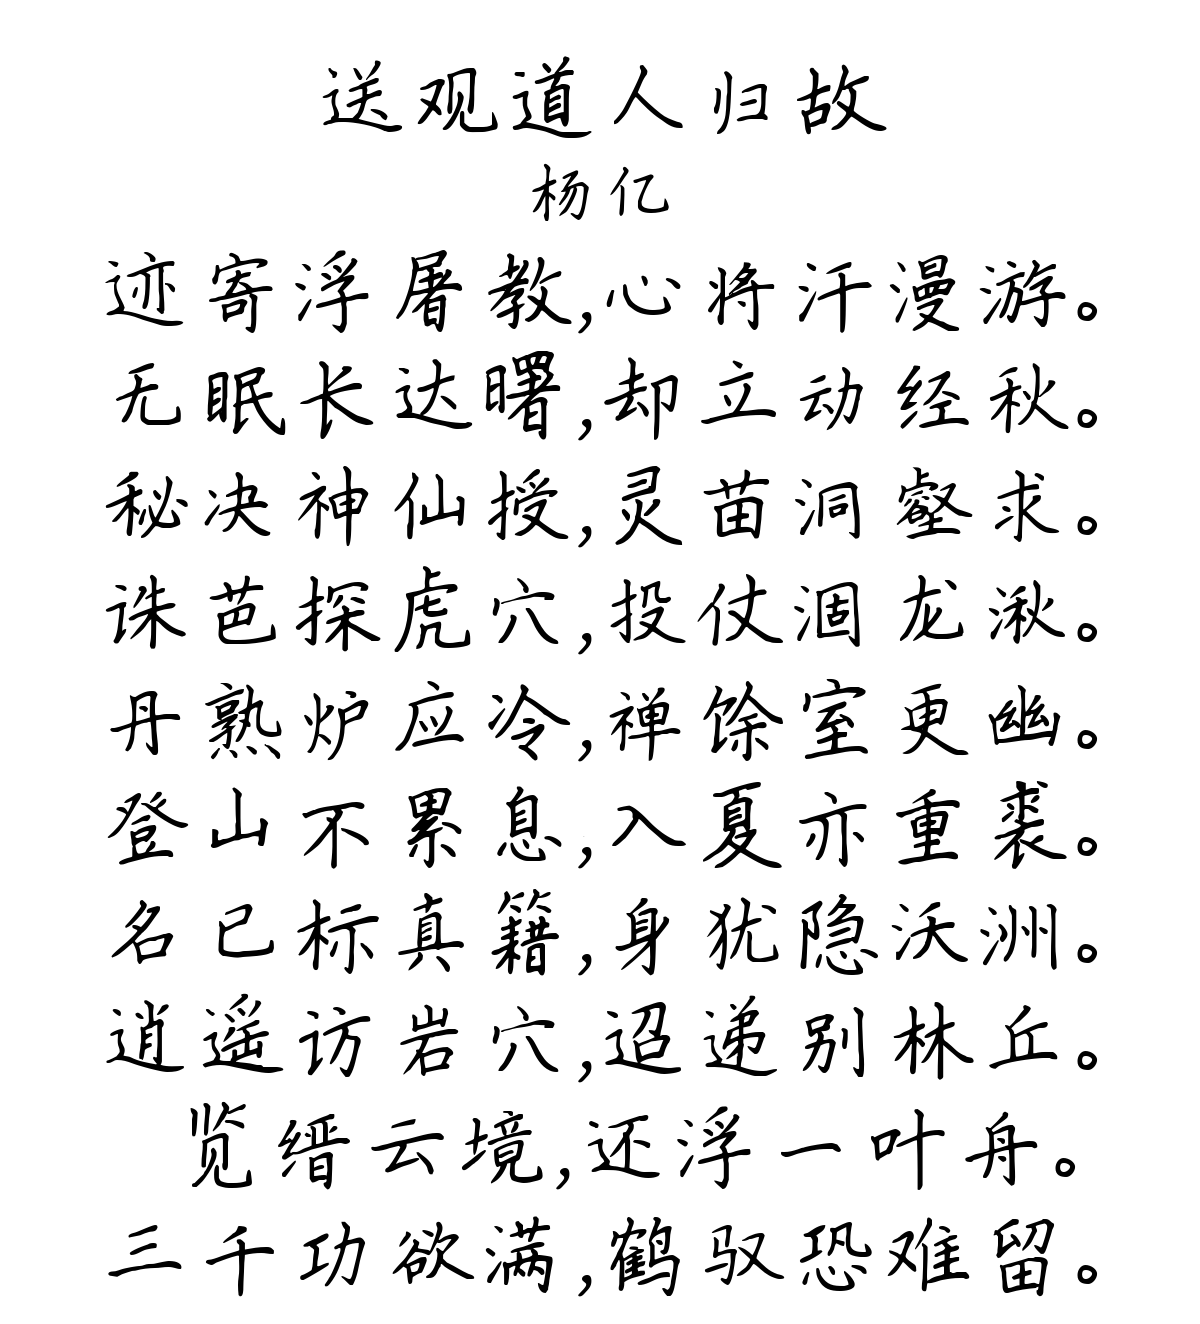 送观道人归故
杨亿
迹寄浮屠教,心将汗漫游。
无眠长达曙,却立动经秋。
秘决神仙授,灵苗洞壑求。
诛芭探虎穴,投仗涸龙湫。
丹熟炉应冷,禅馀室更幽。
登山不累息,入夏亦重裘。
名已标真籍,身犹隐沃洲。
逍遥访岩穴,迢递别林丘。
览缙云境,还浮一叶舟。
三千功欲满,鹤驭恐难留。